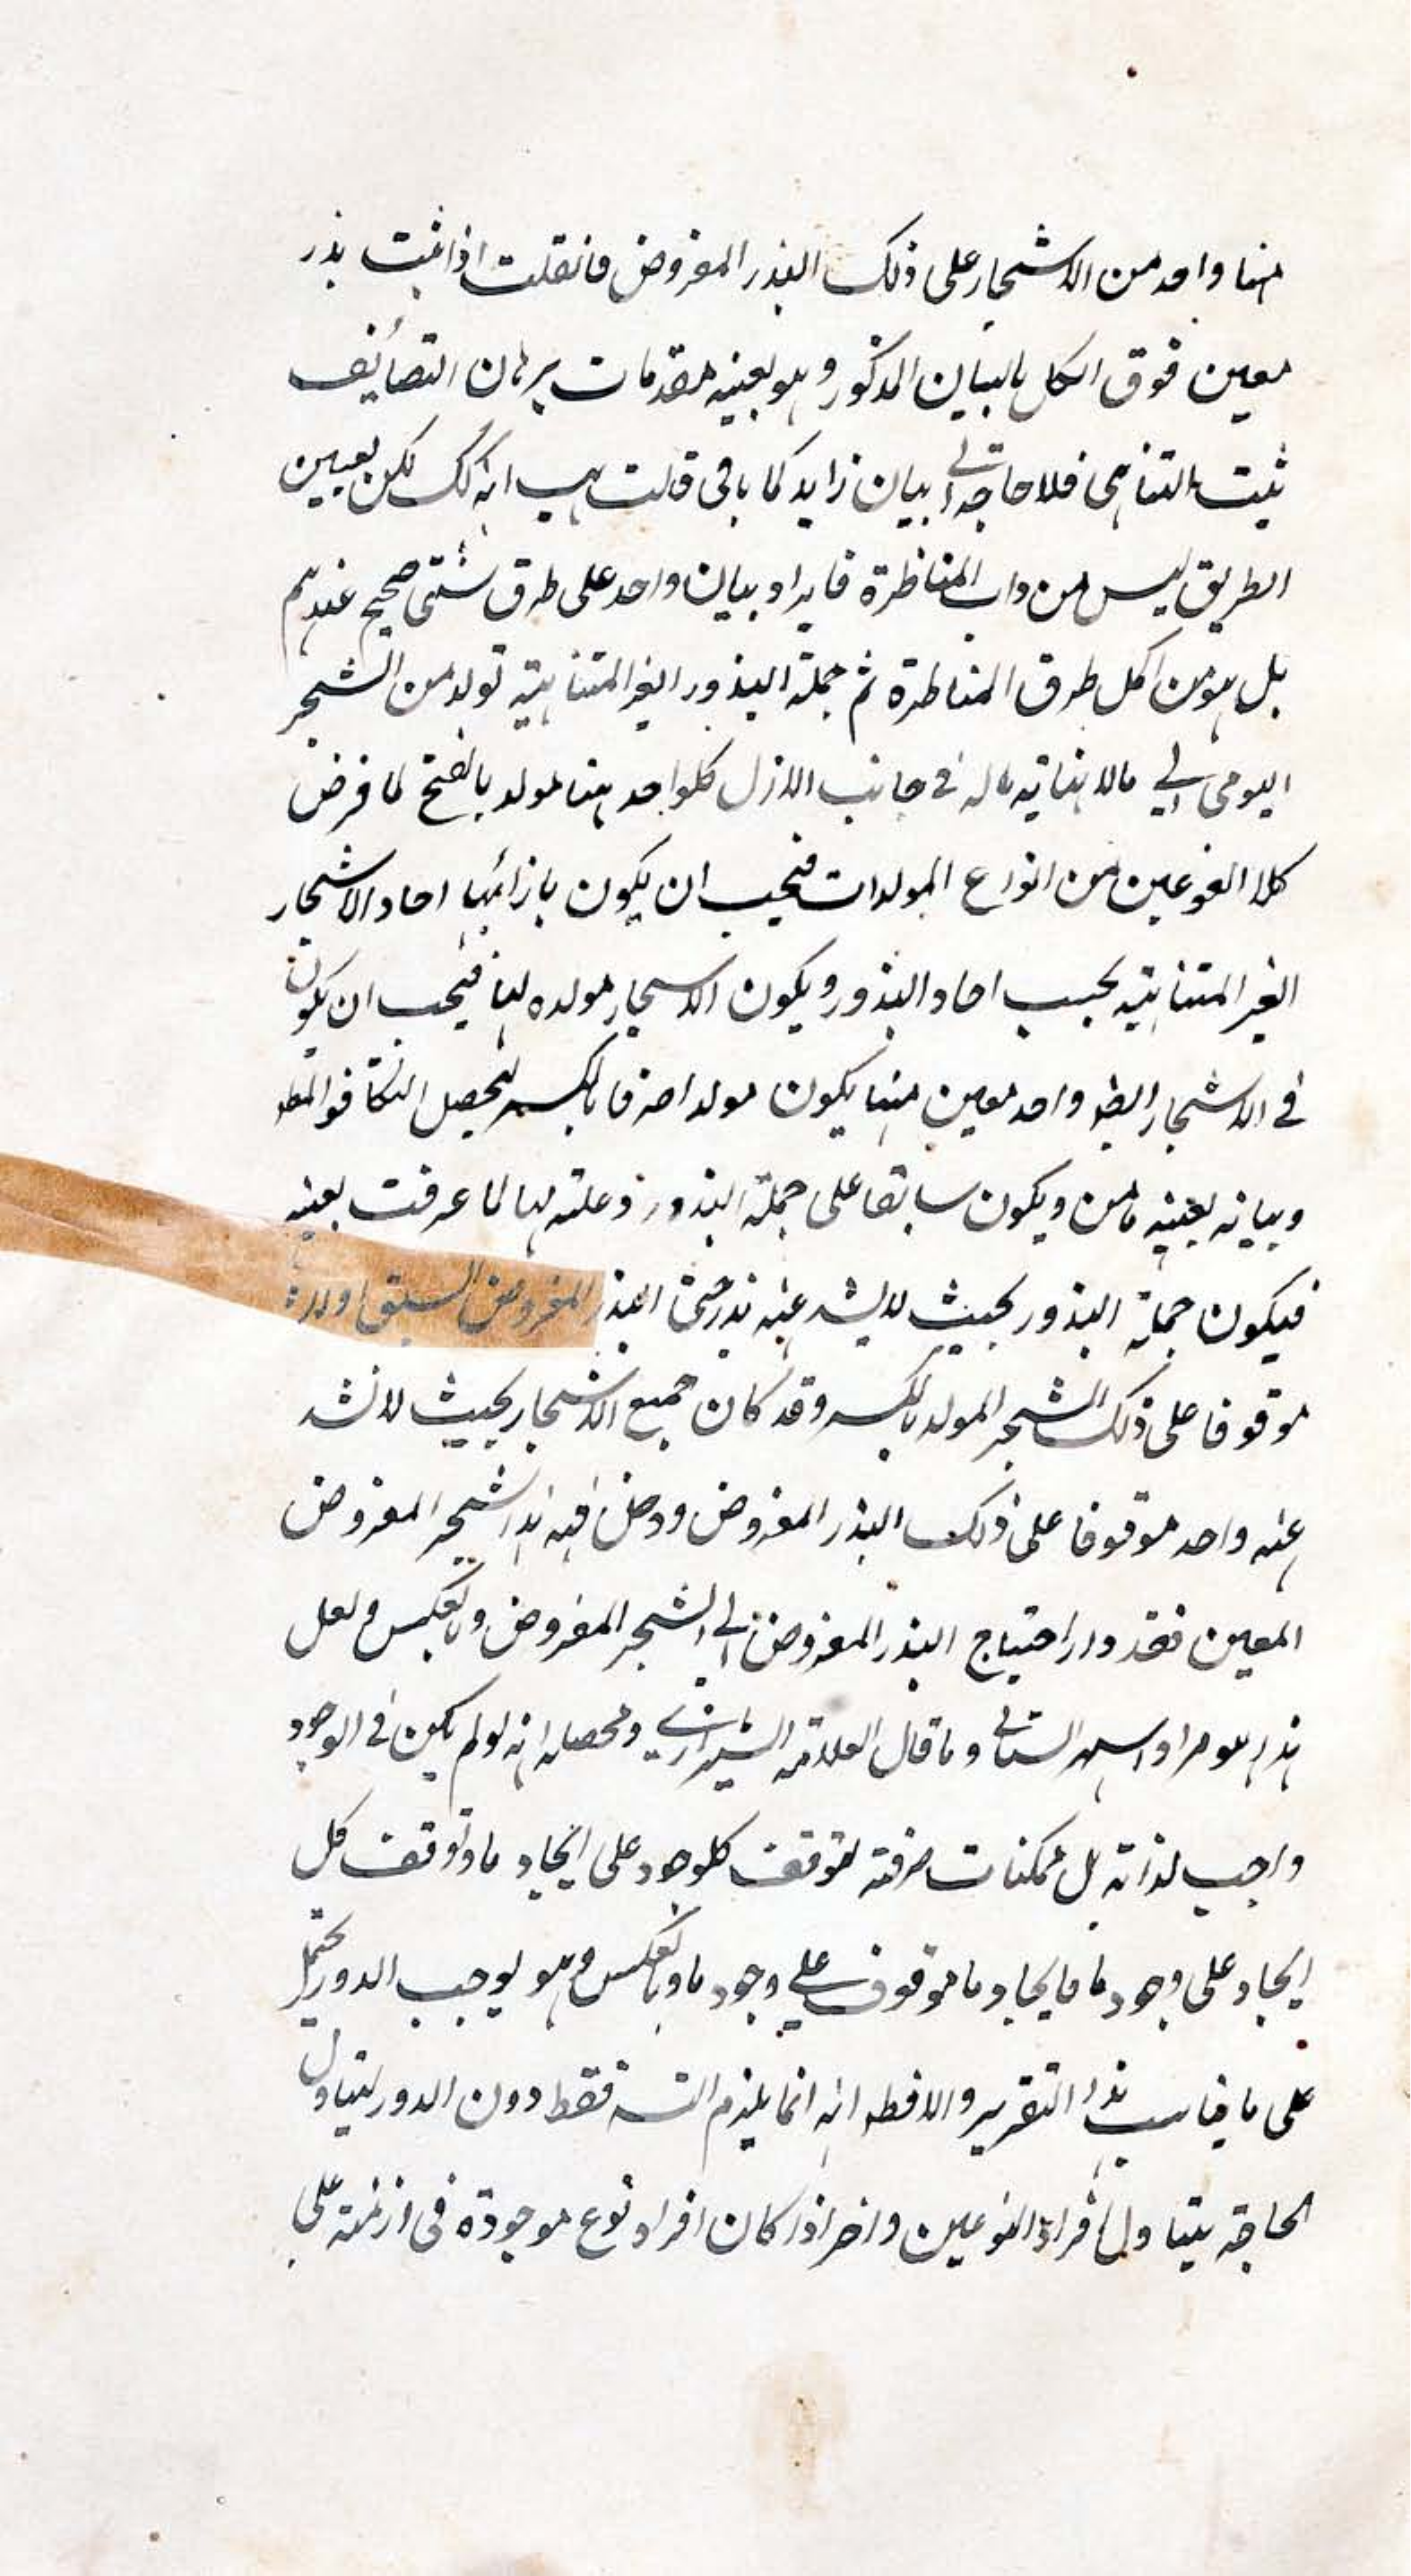 منها واحد من الاشجار على ذلك البذر المفروض فان قلت اذا ثبت بذر
معين فوق الكل بالبيان المذكور وهو بعينه مقدمات برهان التضائف
ثبت التناهى فلا حاجة الى بيان زايد كما باقى قلت هب انه كك لكن تعيين
الطريق ليس من داب المناظرة فايراد بيان واحد على طرق شتى صحيح عندهم
بل هو من اكمل طرق المناظرة ثم جملة البذور الغير المتناهية تولد من الشجر
اليومى الى مالا نهاية له فى جانب الازل كلواحد منها مولد بالفتح لما فرض
كلا النوعين من انواع المولدات فيجب ان يكون بازائها احاد الاشجار
الغير المتناهية بحسب احاد البذور ويكون الاشجار مولده لها فيجب ان يكون
فى الاشجار ايضا واحد معين منها يكون مولدا صرفا بالكسر ليحصل التكافو
وبيانه بعينه مامن ويكون سابقا على جملة البذور وعلته لها لما عرفت بعينه
فيكون جملة البذور بحيث لايشد عنه بذر حتى البذر المفروض السبق اولا
موقوفا على ذلك الشجر المولد بالكسر وقد كان جميع الاشجار بحيث لا يشد
عنه واحد موقوفا على ذلك البذر المفروض ودخل فيه هذا الشجر المفروض
المعين فقد دار احتياج البذر المفروض الى الشجر المفروض وبالعكس ولعل
هذا هو مراد وما قال العلامة الشيرازى ومحصله انه لو لم يكن فى الوجود
واجب لذاته بل ممكنات صرفة لتوقف كلوجود على ايجاد ما وتوقف كل
ايجاد على وجود ما فايجاد ما موقوف على وجود ما وبالعكس وهو يوجب الدور يحتمل
على ما يناسب هذا التقرير والا فظ انه انما يلزم التس فقط دون الدور ليتبادل
الحاجة يتبادل افراد النوعين واخر اذا كان افراد نوع موجودة فى ازمنة على